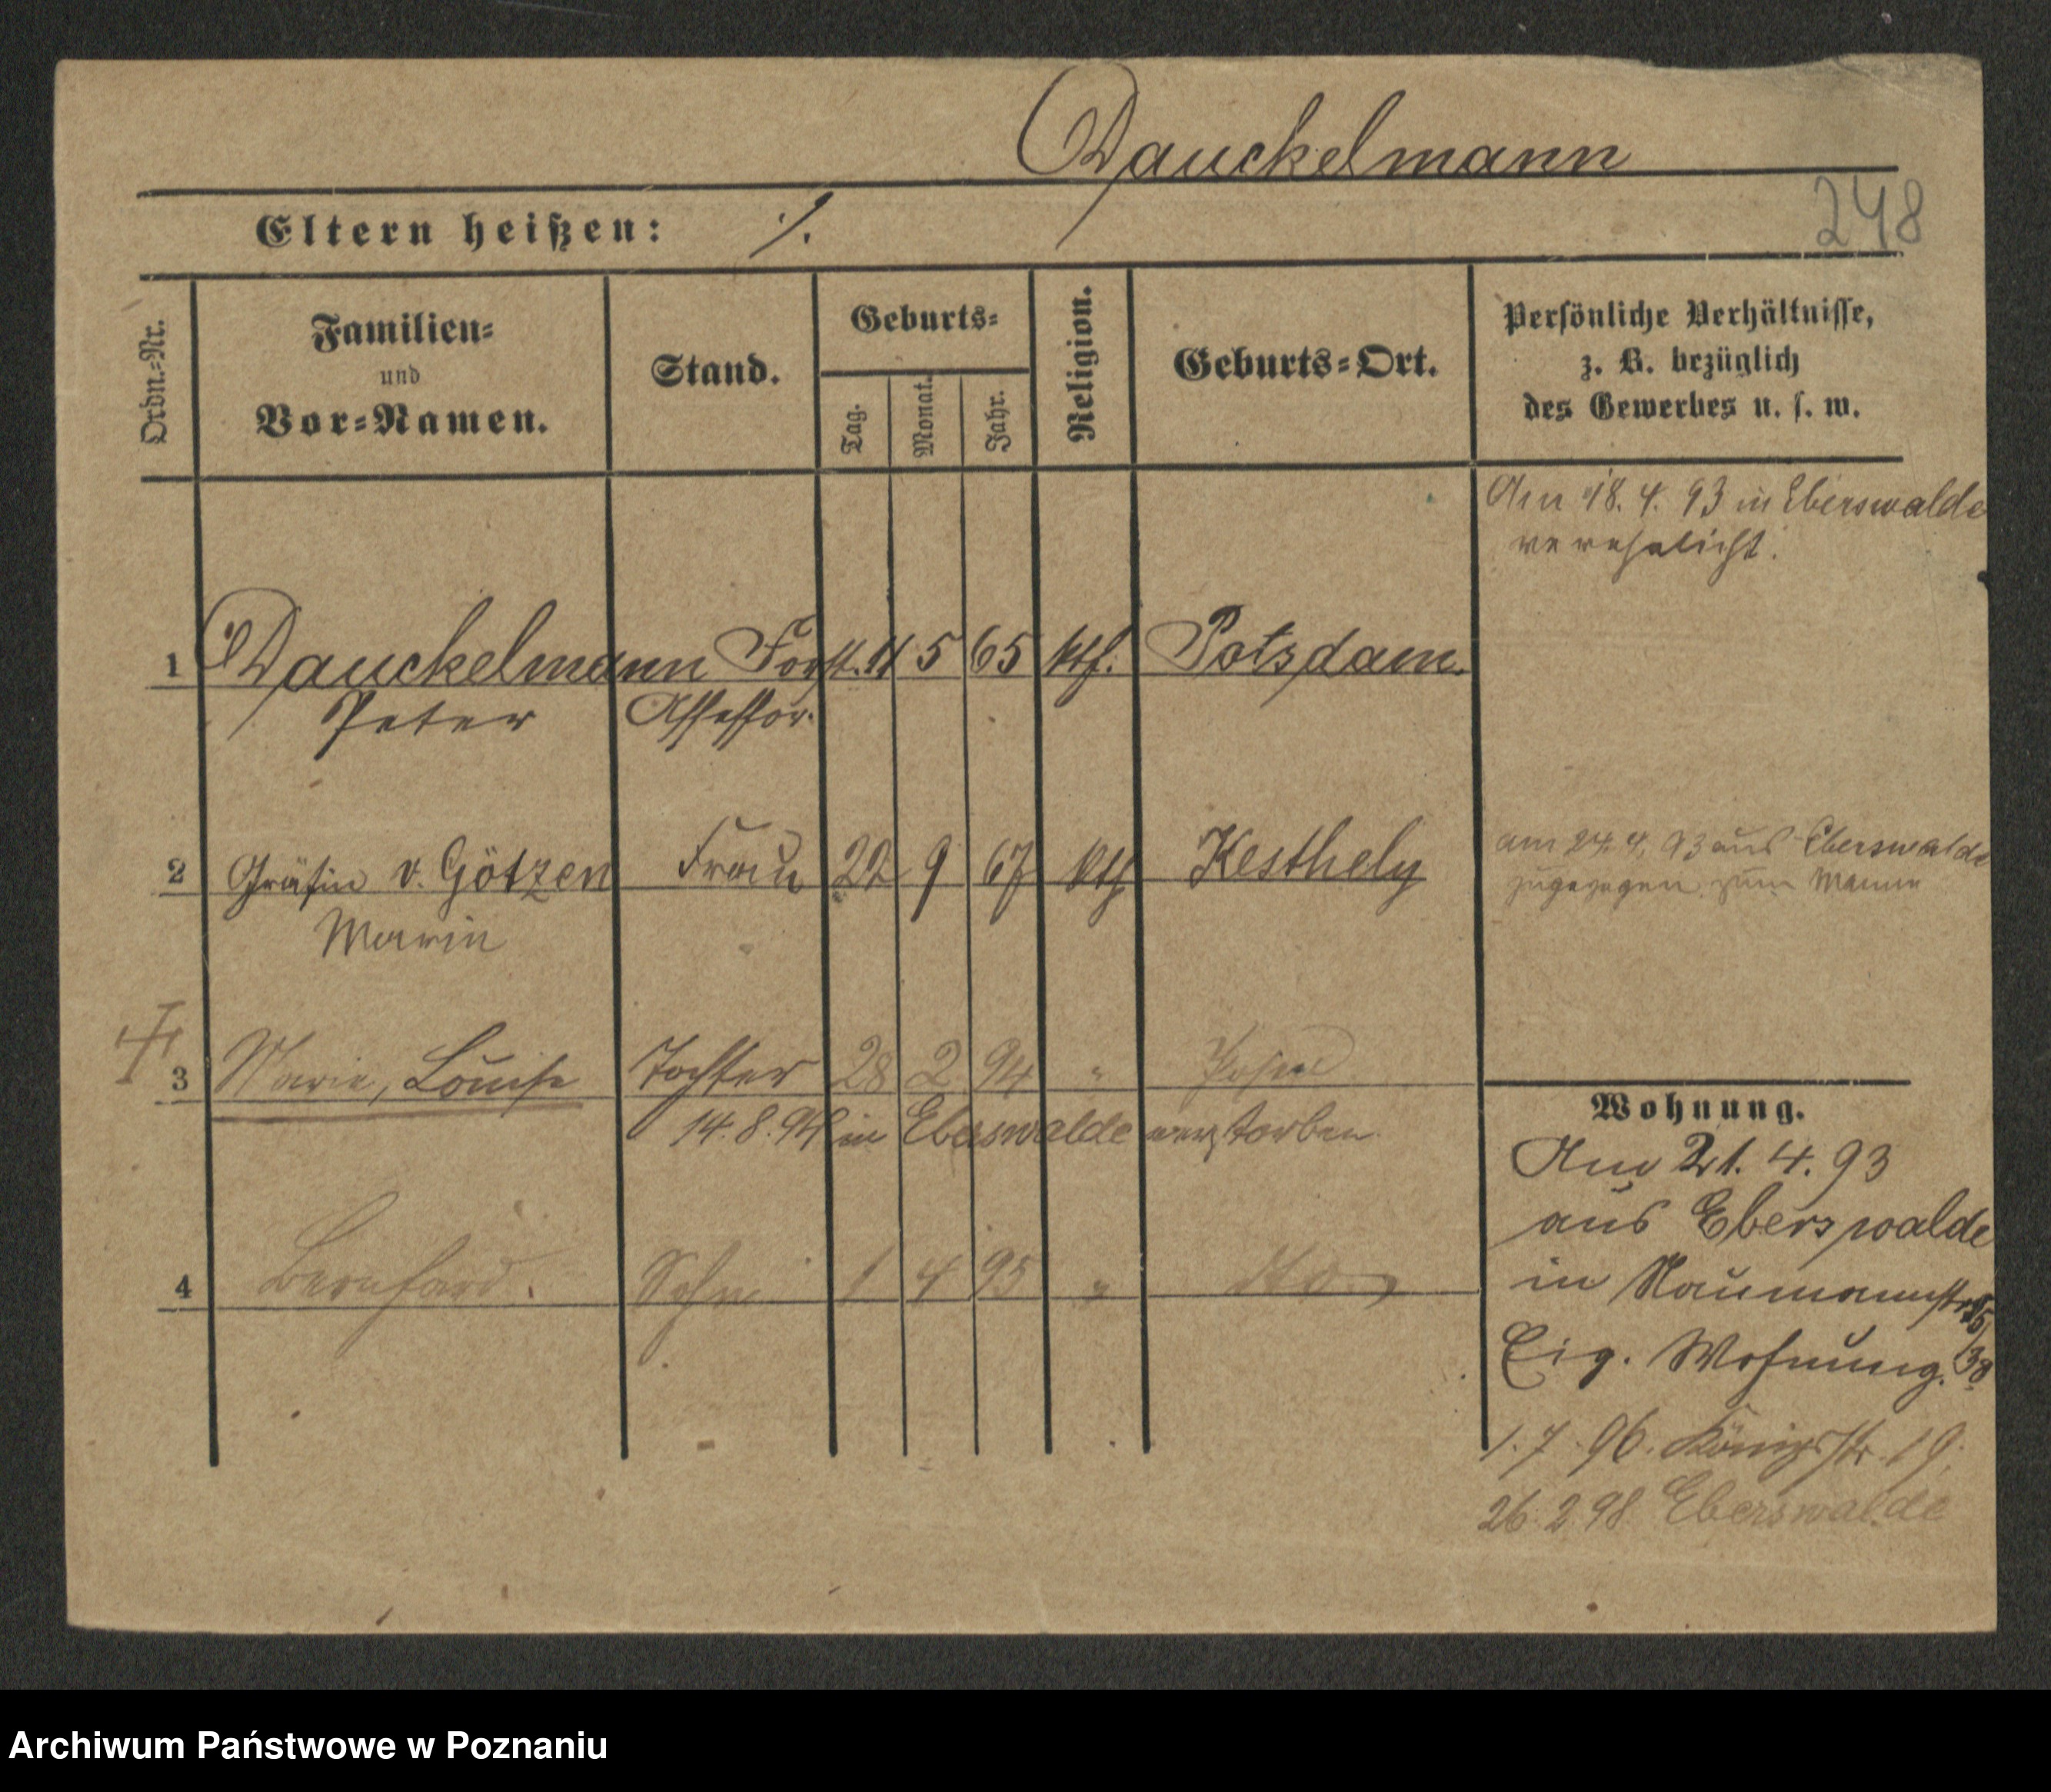 Dauckelmann
248
Eltern heißen: ./.
Ordn.-Nr.
Familien-
und
Vor-Namen.
Stand.
Geburts-
Tag.
Monat.
Jahr.
Religion.
Geburts-Ort.
Persönliche Verhältnisse,
z. B. bezüglich
des Gewerbes u. s. w.
Am 18. 4. 93 in Eberswalde
verehelicht.
1 Dauckelmann Forst. 11 5 65 kth. Potsdam.
Peter Assessor.
2 Gräfin v. Götzen Frau 22 9 67 kth Kesthely
Marie
am 24. 4. 93 aus Eberswalde
zugezogen zum Manne
3 Marie, Louise Tochter 28 2 94 " Posen
14. 8. 94 in Eberswalde verstorben.
4 Bernhard. Sohn 1 4 95 " dto.
Wohnung.
Am 21. 4. 93
aus Eberswalde
in Naumannstr.
Eig. Wohnung.
1. 7. 96. Königsstr. 19.
26. 2 98 Eberswalde
Archiwum Państwowe w Poznaniu